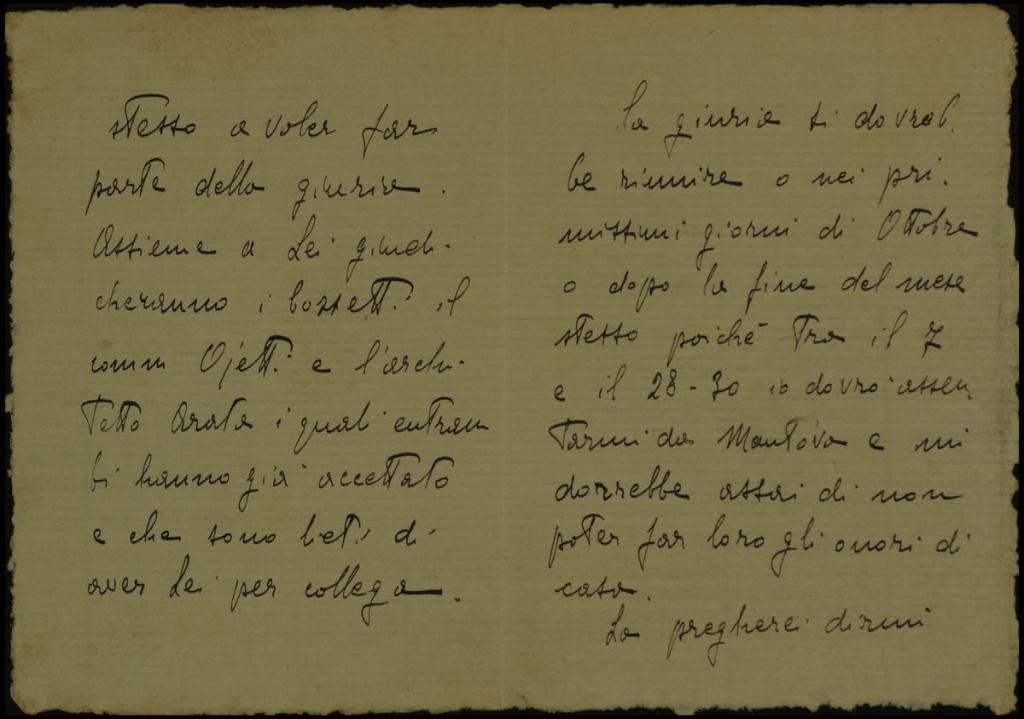 stesso a voler far
parte della giuria.
Assieme a Lei giudi-
cheranno i bozzetti il
comm Ojetti e l'archi-
tetto Arata i quali entram
bi hanno già accettato
e che sono lieti di
aver Lei per collega.
La giuria si dovreb.
be riunire o nei pri.
missimi giorni di Ottobre
o dopo la fine del mese
stesso poiché tra il 7
e il 28-30 io dovrò assen
tarmi da Mantova e mi
dorrebbe assai di non
poter far loro gli onori di
casa.
La pregherei dirmi